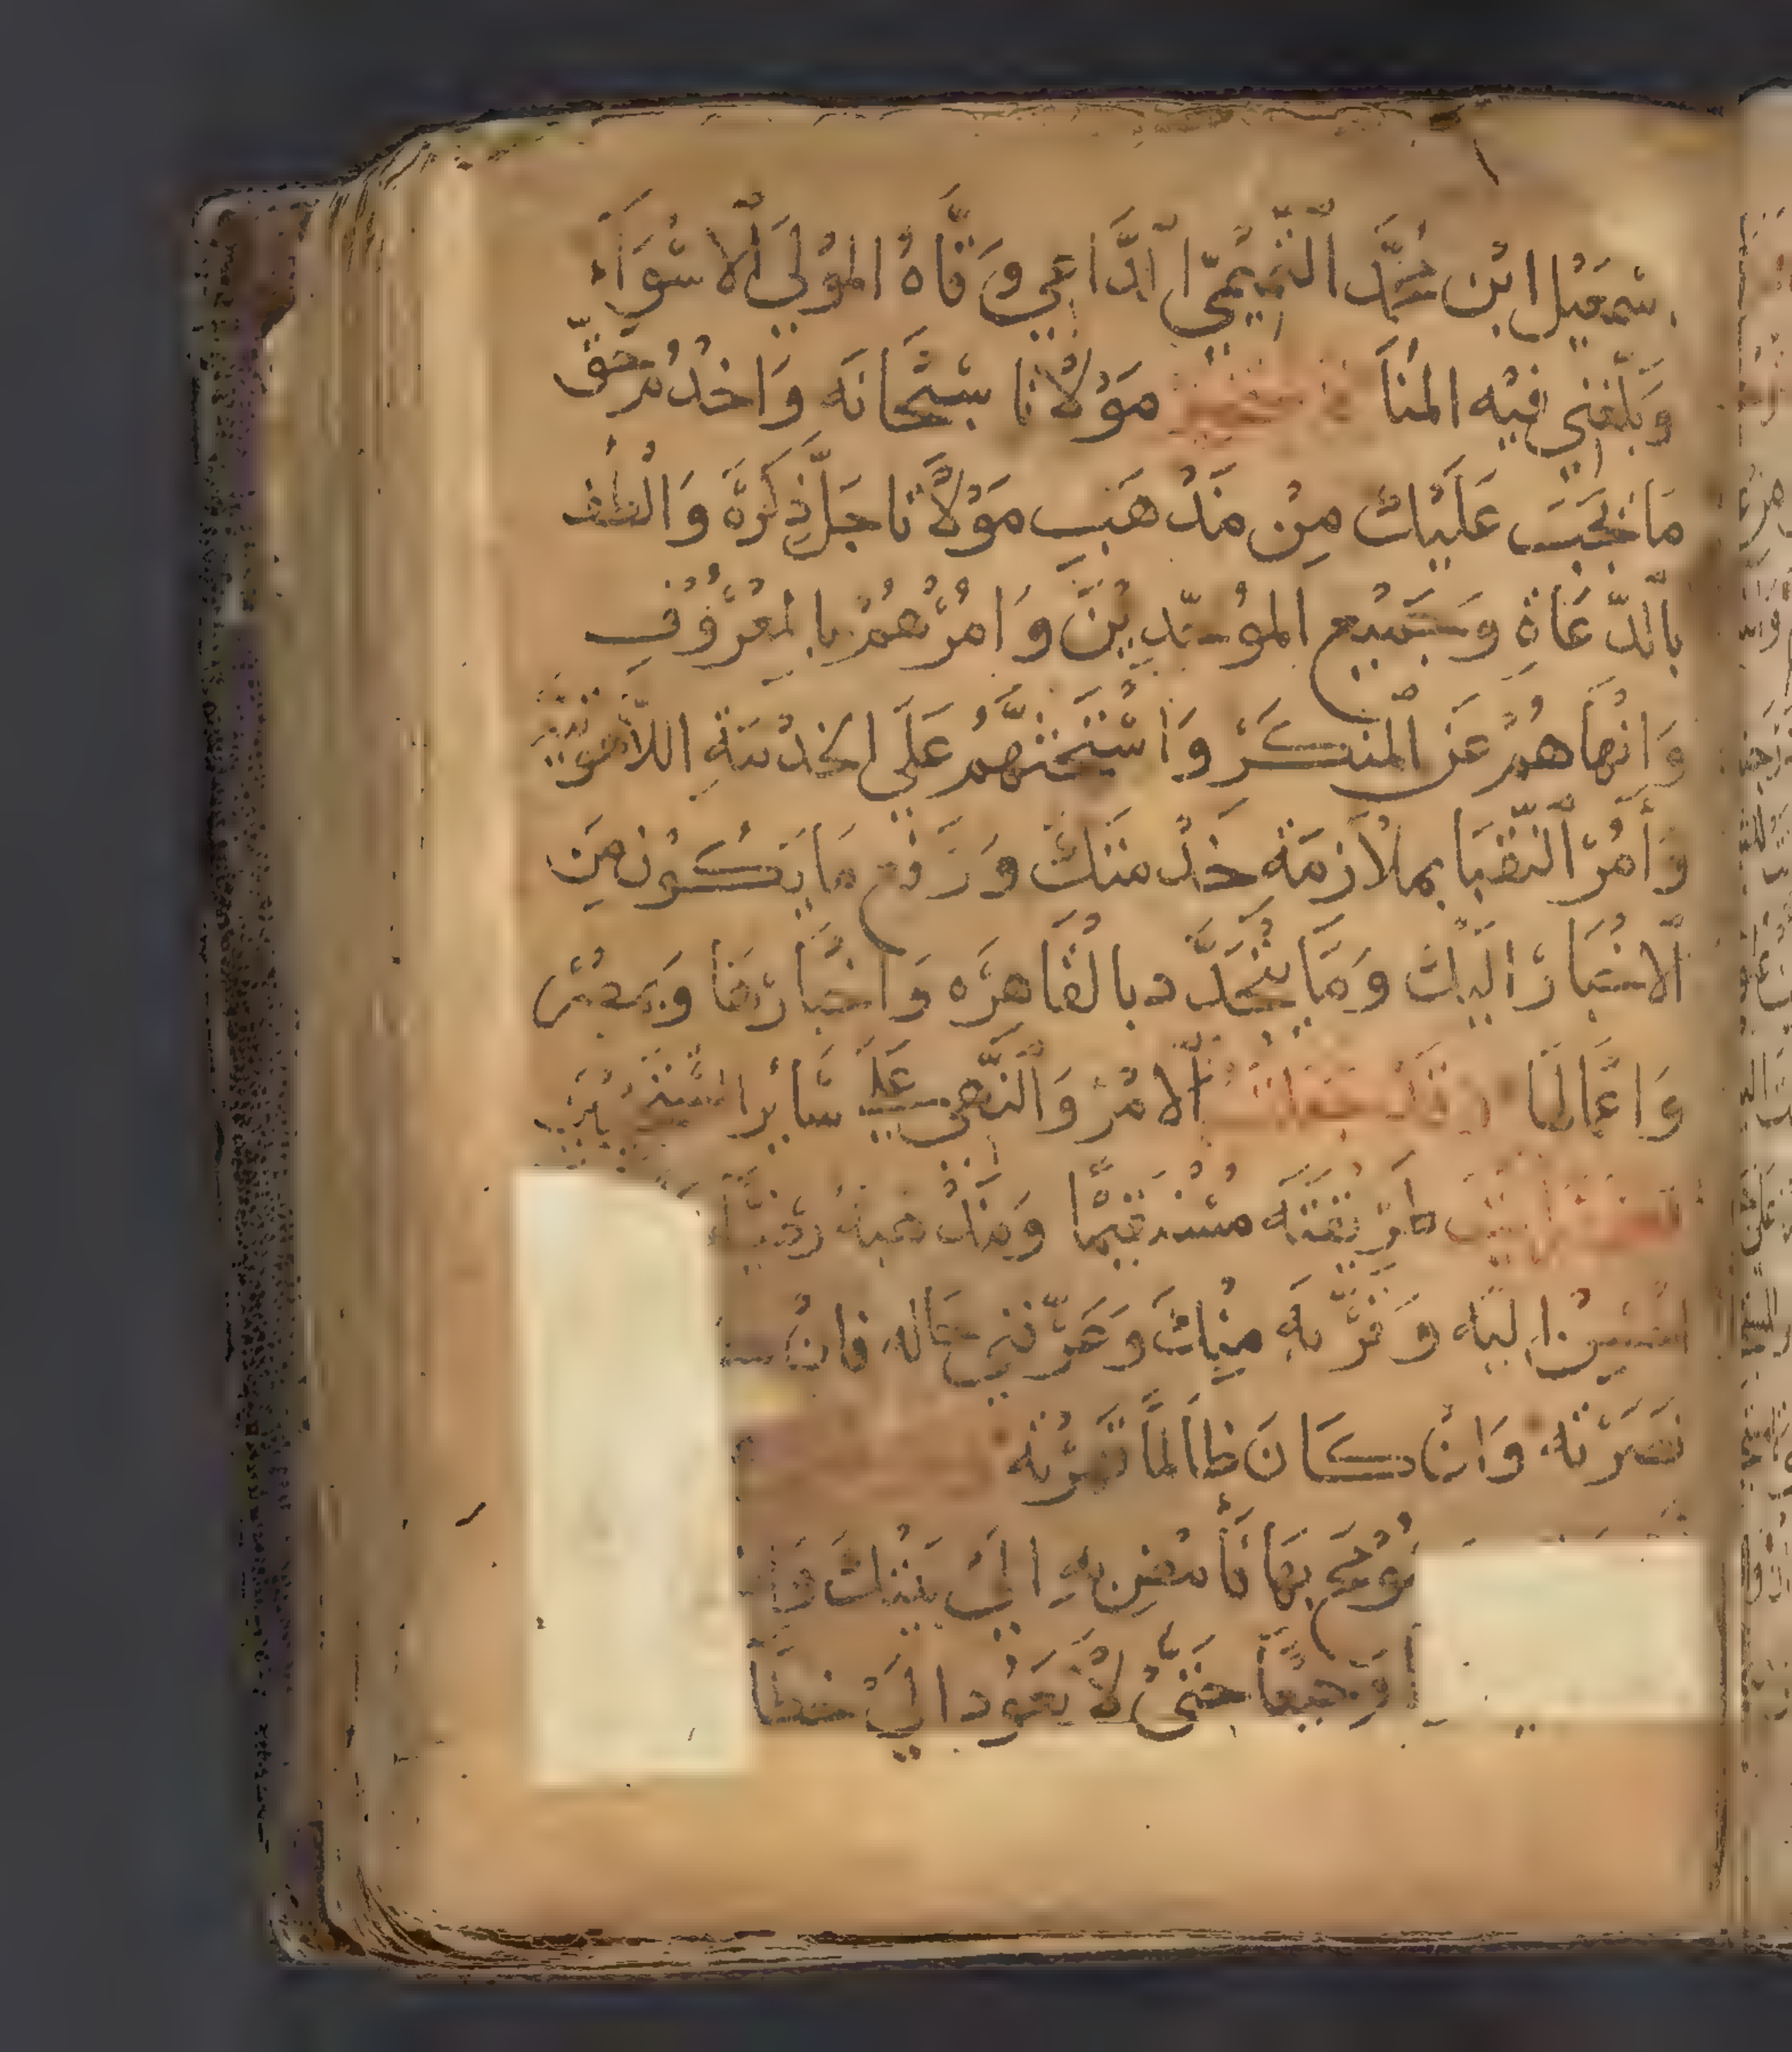 سمعيل ابن محمد التميمي الداعي وقاه المولى الاسواء
وبلغني فيه المنا مولانا سبحانه واخدم حق
ما يجب عليك من مذهب مولانا جل ذكره والطف
بالدعاة وجميع الموحدين وامرهم بالمعروف
وانهاهم عن المنكر واستحثهم على الخدمة اللاهوتية
وأمر النقبا بملازمة خدمتك ورفع ما يكون من
الاخبار اليك وما يتجدد بالقاهره واخبارها ومصر
واعمالها فقد جعلت الامر والنهي على سائر
طريقته مستقيما ومذهبه رضيا
اليه وقربه منك وعرفني حاله فان
نصرته وان كان ظالما قهرته
توجع بها فأمض به الي بيتك
وجيعا حتى لا يعود الى خطا